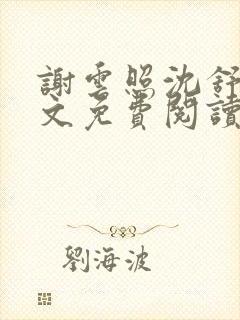 謝雲照沈舒
文免費閱讀
劉海波